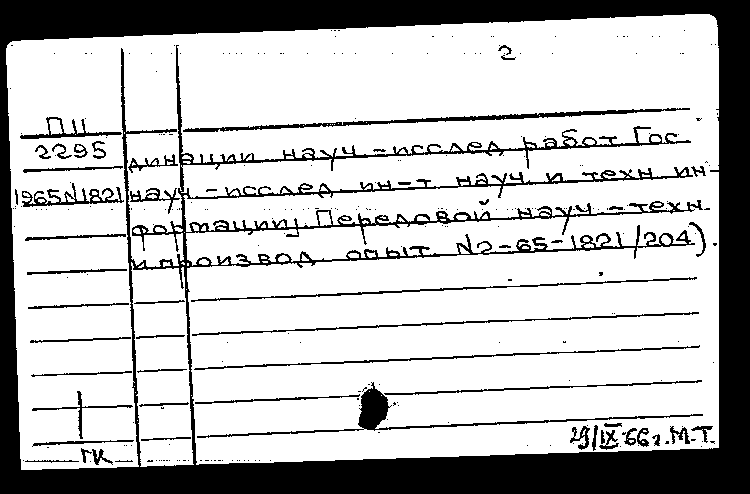 2
П11
2295
динации науч-исслед работ Гос
1965 N1821 науч-исслед ин-т науч и техн ин-
формации). Передовой науч-техн.
и производ опыт. N2-65-1821/204).
ГК
29/IX-66г. М.Т.